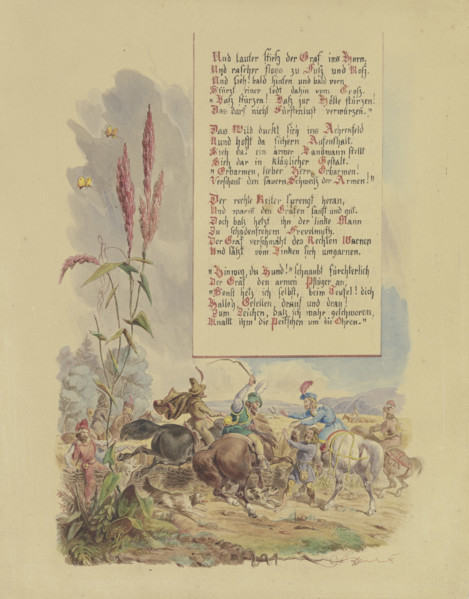 Und lauter stieß der Graf ins Horn,
Und rascher flogs zu Fuß und Roß.
Und sieh! bald hinten und bald vorn
Stürzt einer todt dahin vom Troß.
„Laß stürzen! Laß zur Hölle stürzen!
Das darf nicht Fürstenlust verwürzen.“
Das Wild duckt sich ins Aehrenfeld
Und hofft da sichern Aufenthalt.
Sieh da! ein armer Landmann stellt
Sich dar in kläglicher Gestalt.
„Erbarmen, lieber Herr, Erbarmen!
Verschont den sauern Schweiß der Armen!“
Der rechte Reiter sprengt heran,
Und warnt den Grafen sanft und gut.
Doch baß hetzt ihn der linke Mann
Zu schadenfrohem Frevelmuth.
Der Graf verschmäht des Rechten Warnen
Und läßt vom Linken sich umgarnen.
„Hinweg, du Hund!“ schnaubt fürchterlich
Der Graf den armen Pflüger an,
„Sonst hetz ich selbst, beim Teufel! dich
Halloh, Gesellen, drauf und dran!
Zum Zeichen, daß ich wahr geschworen,
Knallt ihm die Peitschen um die Ohren.“